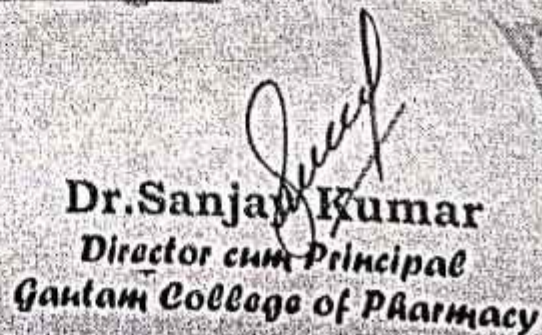 Dr.Sanjay Kumar
Director cum Principal
Gautam College of Pharmacy